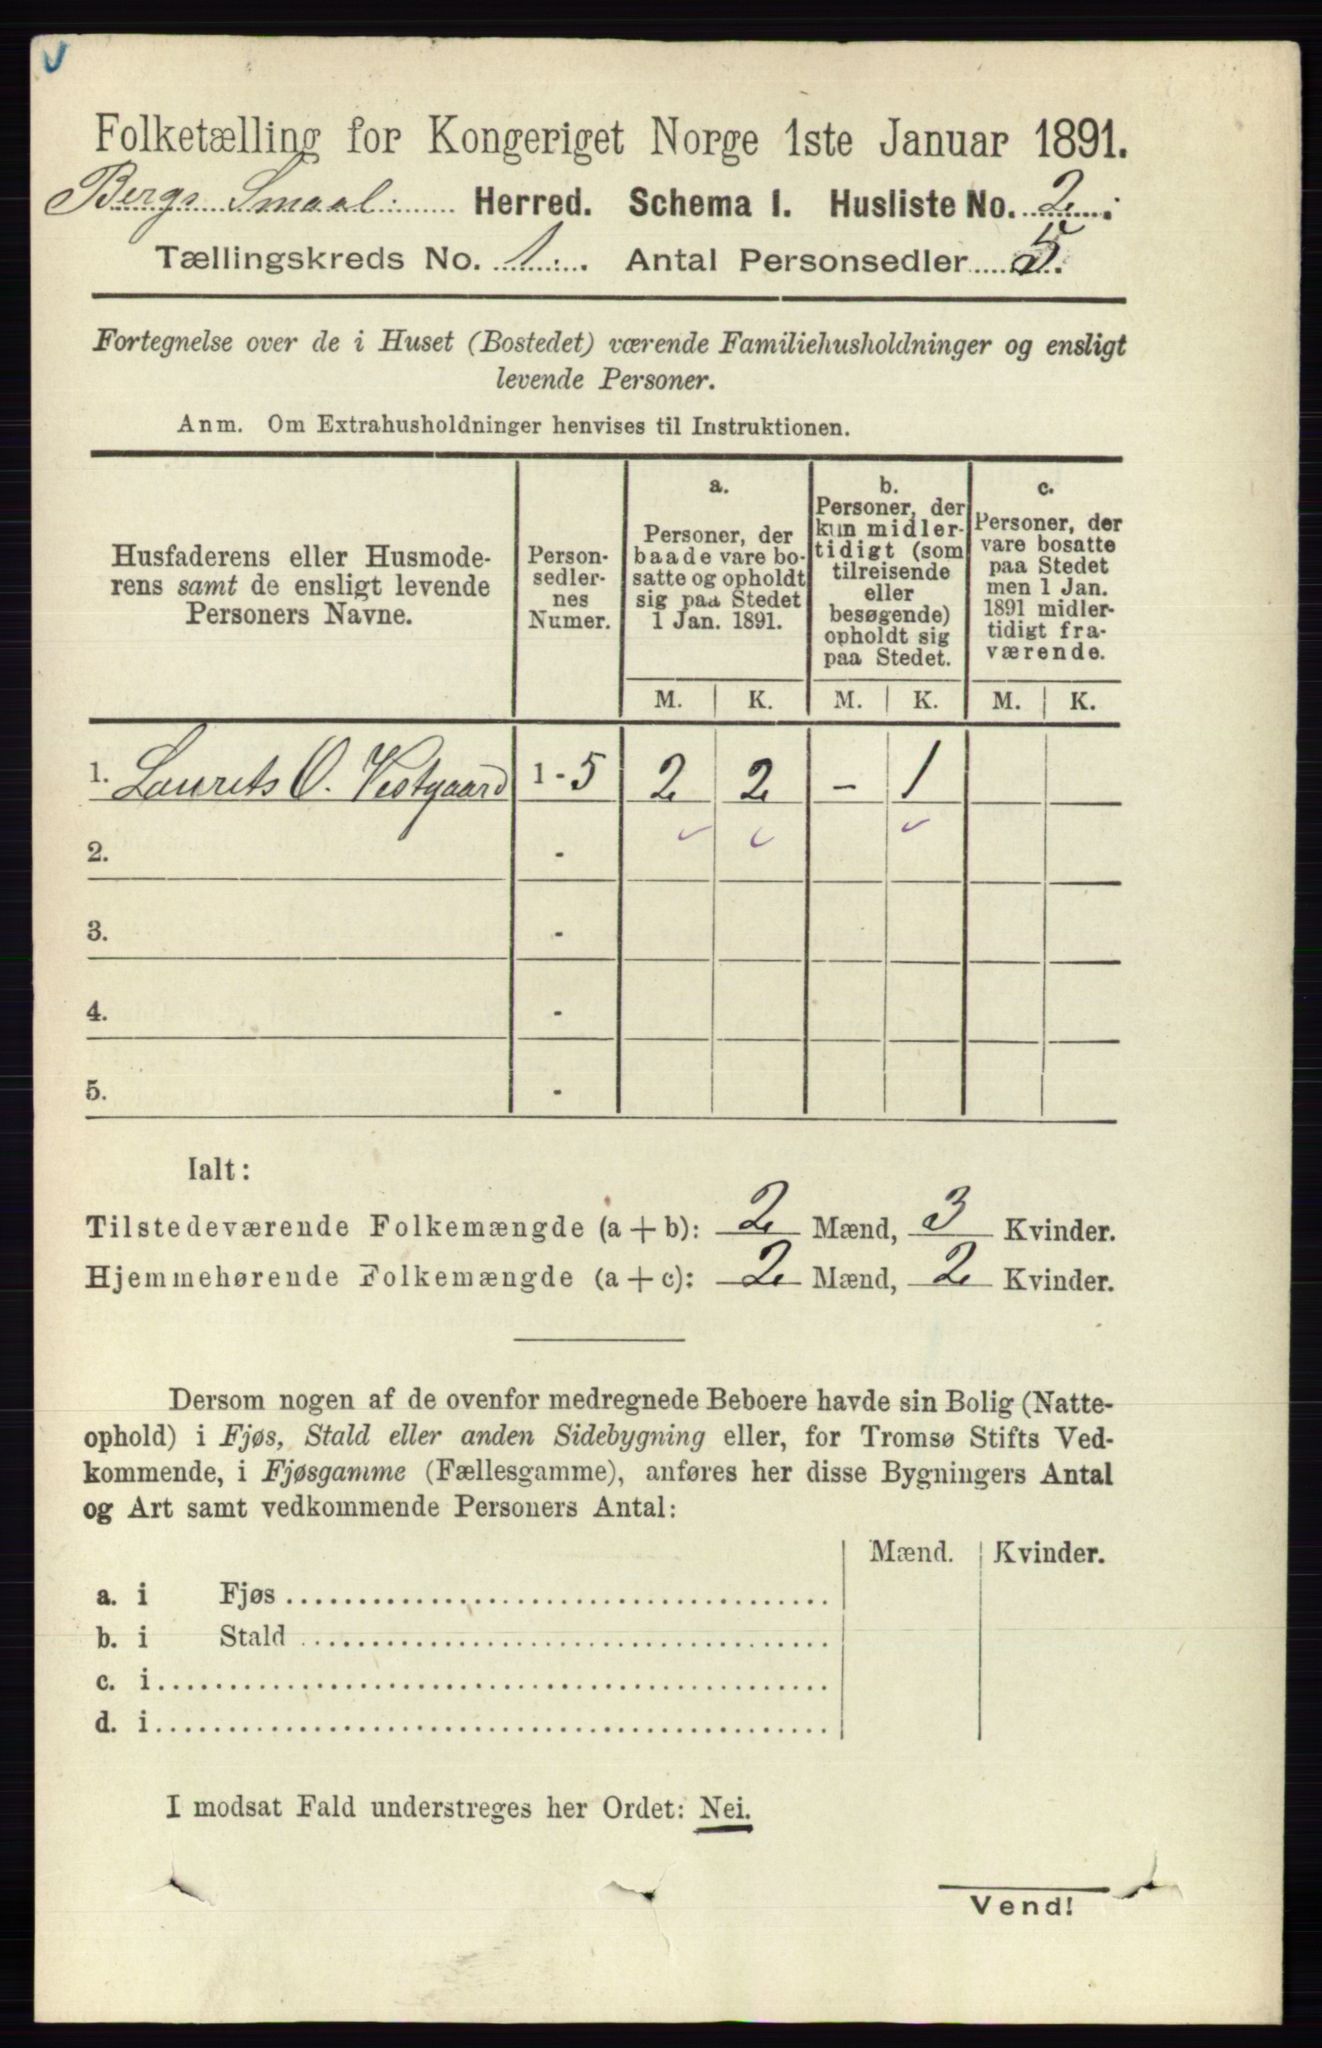 Folketælling for Kongeriget Norge 1ste Januar 1891.
Bergs Smaal. Herred. Schema I. Husliste No. 2.
Tællingskreds No. 1. Antal Personsedler 5.
Fortegnelse over de i Huset (Bostedet) værende Familiehusholdninger og ensligt
levende Personer.
Anm. Om Extrahusholdninger henvises til Instruktionen.
Husfaderens eller Husmode-
rens samt de ensligt levende
Personers Navne.
Person-
sedler-
nes
Numer.
a.
Personer, der
baade vare bo-
satte og opholdt
sig paa Stedet
1 Jan. 1891.
b.
Personer, der
kun midler-
tidigt (som
tilreisende
eller
besøgende)
opholdt sig
paa Stedet.
c.
Personer, der
vare bosatte
paa Stedet
men 1 Jan.
1891 midler-
tidigt fra-
værende.
M. K. M. K. M. K.
1. Laurits O. Vestgaard 1 - 5 2 2 - 1
2. -
3. -
4. -
5. -
Ialt:
Tilstedeværende Folkemængde (a + b): 2 Mænd, 3 Kvinder.
Hjemmehørende Folkemængde (a + c): 2 Mænd, 2 Kvinder.
Dersom nogen af de ovenfor medregnede Beboere havde sin Bolig (Natte-
ophold) i Fjøs, Stald eller anden Sidebygning eller, for Tromsø Stifts Ved-
kommende, i Fjøsgamme (Fællesgamme), anføres her disse Bygningers Antal
og Art samt vedkommende Personers Antal:
Mænd. Kvinder.
a. i Fjøs
b. i Stald
c. i
d. i
I modsat Fald understreges her Ordet: Nei.
Vend!